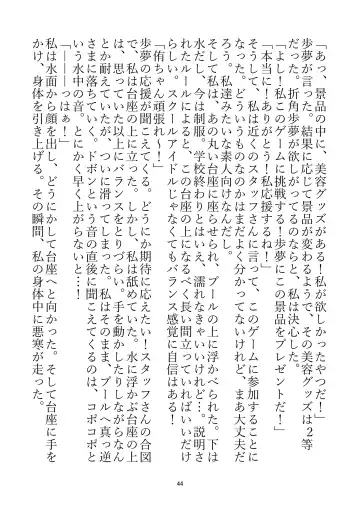 「あっ、景品の中に、美容グッズがある！私が欲しかったやつだ！」
歩夢が言った。結果に応じて景品が変わるようで、その美容グッズは２等
だった。折角歩夢が欲しがってるのならと、私は決心した
「よし！私このゲームに挑戦して、歩夢にこの景品をプレゼントだ！」
「本当に！ありがとう！私応援するね！」
そうして、私は近くのスタッフさんに言って、このゲームに参加することに
なった。どうなるものなのかはまだよく分かってないけれど、まあ大丈夫だ
ろう。私達みたいな素人向けなんだし。
そして私は、あの丸い台座に座らせられ、プールの上に浮かべられた。下は
水だし、今は制服。学校終わりとはいえ、濡れなきゃいいけれど…。説明さ
れたルールによると、この台座の上になるべく長い間立っていればいいだけ
らしい。スクールアイドルじゃなくてもバランス感覚に自信はある！
「侑ちゃん頑張れ～！」
歩夢の応援が聞こえてくる。どうにか期待に応えたい！スタッフさんの合図
で、私は台座の上に立った。しかし、私は舐めていた。水に浮かぶ台座の上
は、思っていた以上にバランスをとりづらい。手を動かしたりしながらなん
とか耐えていたが、ついに滑ってしまった。私はそのまま、プールへ真っ逆
さまに落ちていく。ドボンという音の直後に聞こえてくるのは、コポコポと
いう水中の音。とにかく早く上がらないと…！
「―――っはぁ！」
私は水面から顔を出し、どうにかして台座へと向かった。そして台座に手を
かけ、身体を引き上げる。その瞬間、私の身体中に悪寒が走った。
44